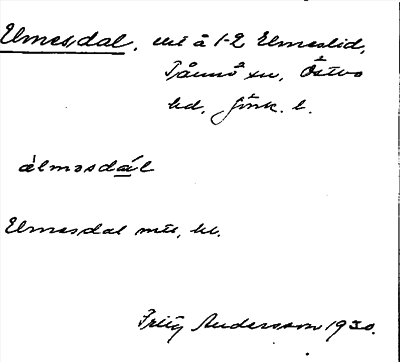 Elmesdal, ut å 1-2 Elmeslid,
Tånnö sn, Östbo
hd, Jönk. l.
álmɘsdál
Elmesdal mtl, kl.
Fritz Andersson 1930.